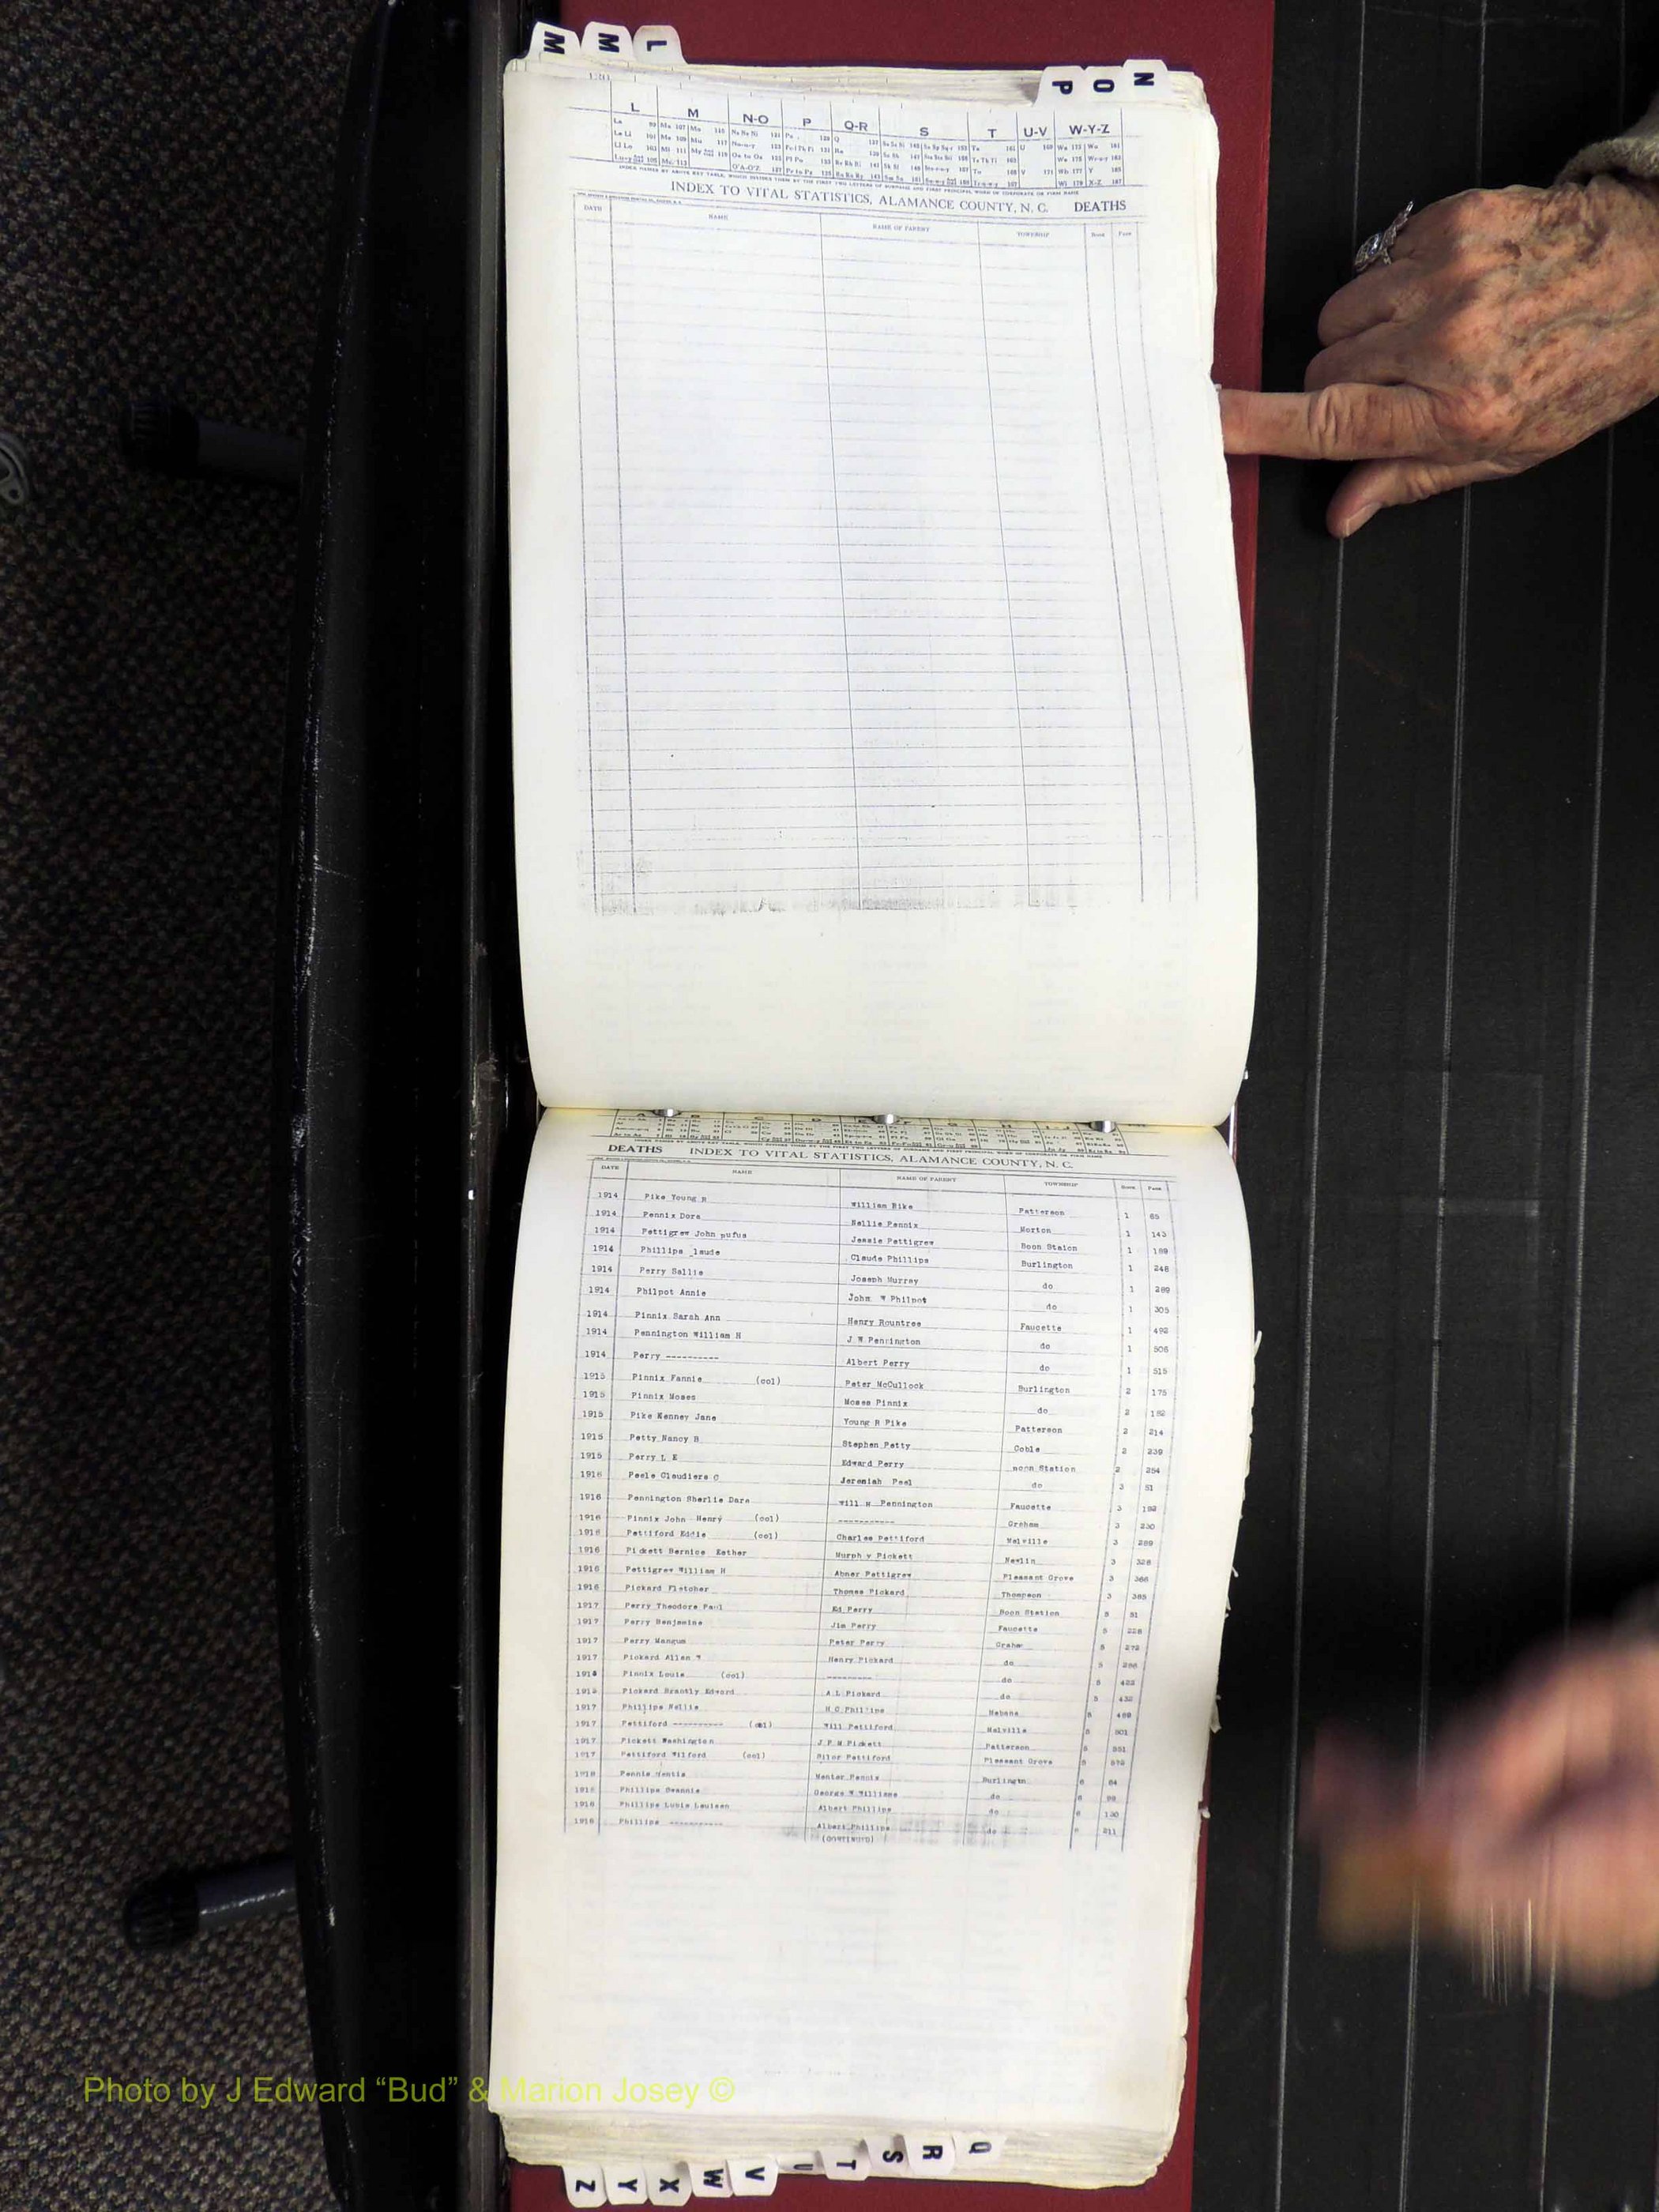 M M L
N O P
L M N-O P Q-R S T U-V W-Y-Z
INDEX NAMES BY ABOVE KEY TABLE, WHICH DIVIDES THEM BY THE FIRST TWO LETTERS OF SURNAME AND FIRST PRINCIPAL WORD OF CORPORATE OR FIRM NAME
INDEX TO VITAL STATISTICS, ALAMANCE COUNTY, N. C. DEATHS
DATE NAME NAME OF PARENT TOWNSHIP Book Page
DEATHS INDEX TO VITAL STATISTICS, ALAMANCE COUNTY, N. C.
DATE NAME NAME OF PARENT TOWNSHIP Book Page
1914 Pike Young R William Bike Patterson 1 65
1914 Pennix Dora Nellie Pennix Morton 1 143
1914 Pettigrew John Rufus Jessie Pettigrew Boon Staion 1 189
1914 Phillips laude Claude Phillips Burlington 1 248
1914 Perry Sallie Joseph Murray do 1 289
1914 Philpot Annie John W Philpot do 1 305
1914 Pinnix Sarah Ann Henry Rountree Faucette 1 492
1914 Pennington William H J W Pennington do 1 506
1914 Perry ---------- Albert Perry do 1 515
1915 Pinnix Fannie (col) Peter McCullock Burlington 2 175
1915 Pinnix Moses Moses Pinnix do 2 182
1915 Pike Kenney Jane Young R Pike Patterson 2 214
1915 Petty Nancy B Stephen Petty Coble 2 239
1915 Perry L E Edward Perry Station 2 254
1916 Peele Claudiers C Jeremiah Peel do 3 51
1916 Pennington Sherlie Dare Will H Pennington Faucette 3 192
1916 Pinnix John Henry (col) ----------- Graham 3 230
1916 Pettiford Eddie (col) Charles Pettiford Melville 3 289
1916 Pickett Bernice Esther Murph y Pickett Newlin 3 328
1916 Pettigrew William H Abner Pettigrew Pleasant Grove 3 366
1916 Pickard Fletcher Thomas Pickard Thompson 3 385
1917 Perry Theodore Paul Ed Perry Boon Station 5 51
1917 Perry Benjamine Jim Perry Faucette 5 228
1917 Perry Mangum Peter Perry Graham 5 272
1917 Pickard Allen Henry Pickard do 5 286
Pinnix Louis (col) --------- do 5 422
Pickard Brantly Edward A L Pickard do 5 432
1917 Phillips Nellie H C Phillips Mebane 5 489
1917 Pettiford ---------- (col) Will Pettiford Melville 5 501
1917 Pickett Washington J P M Pickett Patterson 5 551
1917 Pettiford Wilford (col) Pettiford Pleasant Grove 5
Pennix Burlingtn 6 84
Phillips Swannie George W Williams do 6 99
Phillips Louis Albert Phillips do 6 130
Phillips ---------- Albert Phillips do 211
(CONTINUED)
Photo by J Edward “Bud” & Marion Josey ©
Q R S T U V W X Y Z